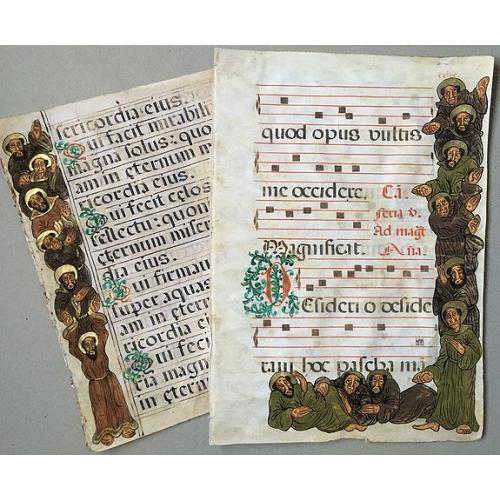 sericordia eius.
Qui facit mirabili
magna solus: quo
am in eternum m
ricordia eius.
Qui fecit celos
tellectu: quon
eternum miser
dia eius.
Qui firmau
super aquas
am in eter
ricordia eiu
Qui feci
ria magn
in etern
quod opus vultis
me occidere. Cã.
feria v.
Ad magt
Magnificat. Aña.
Desideri o deside
raui hoc pascha mã